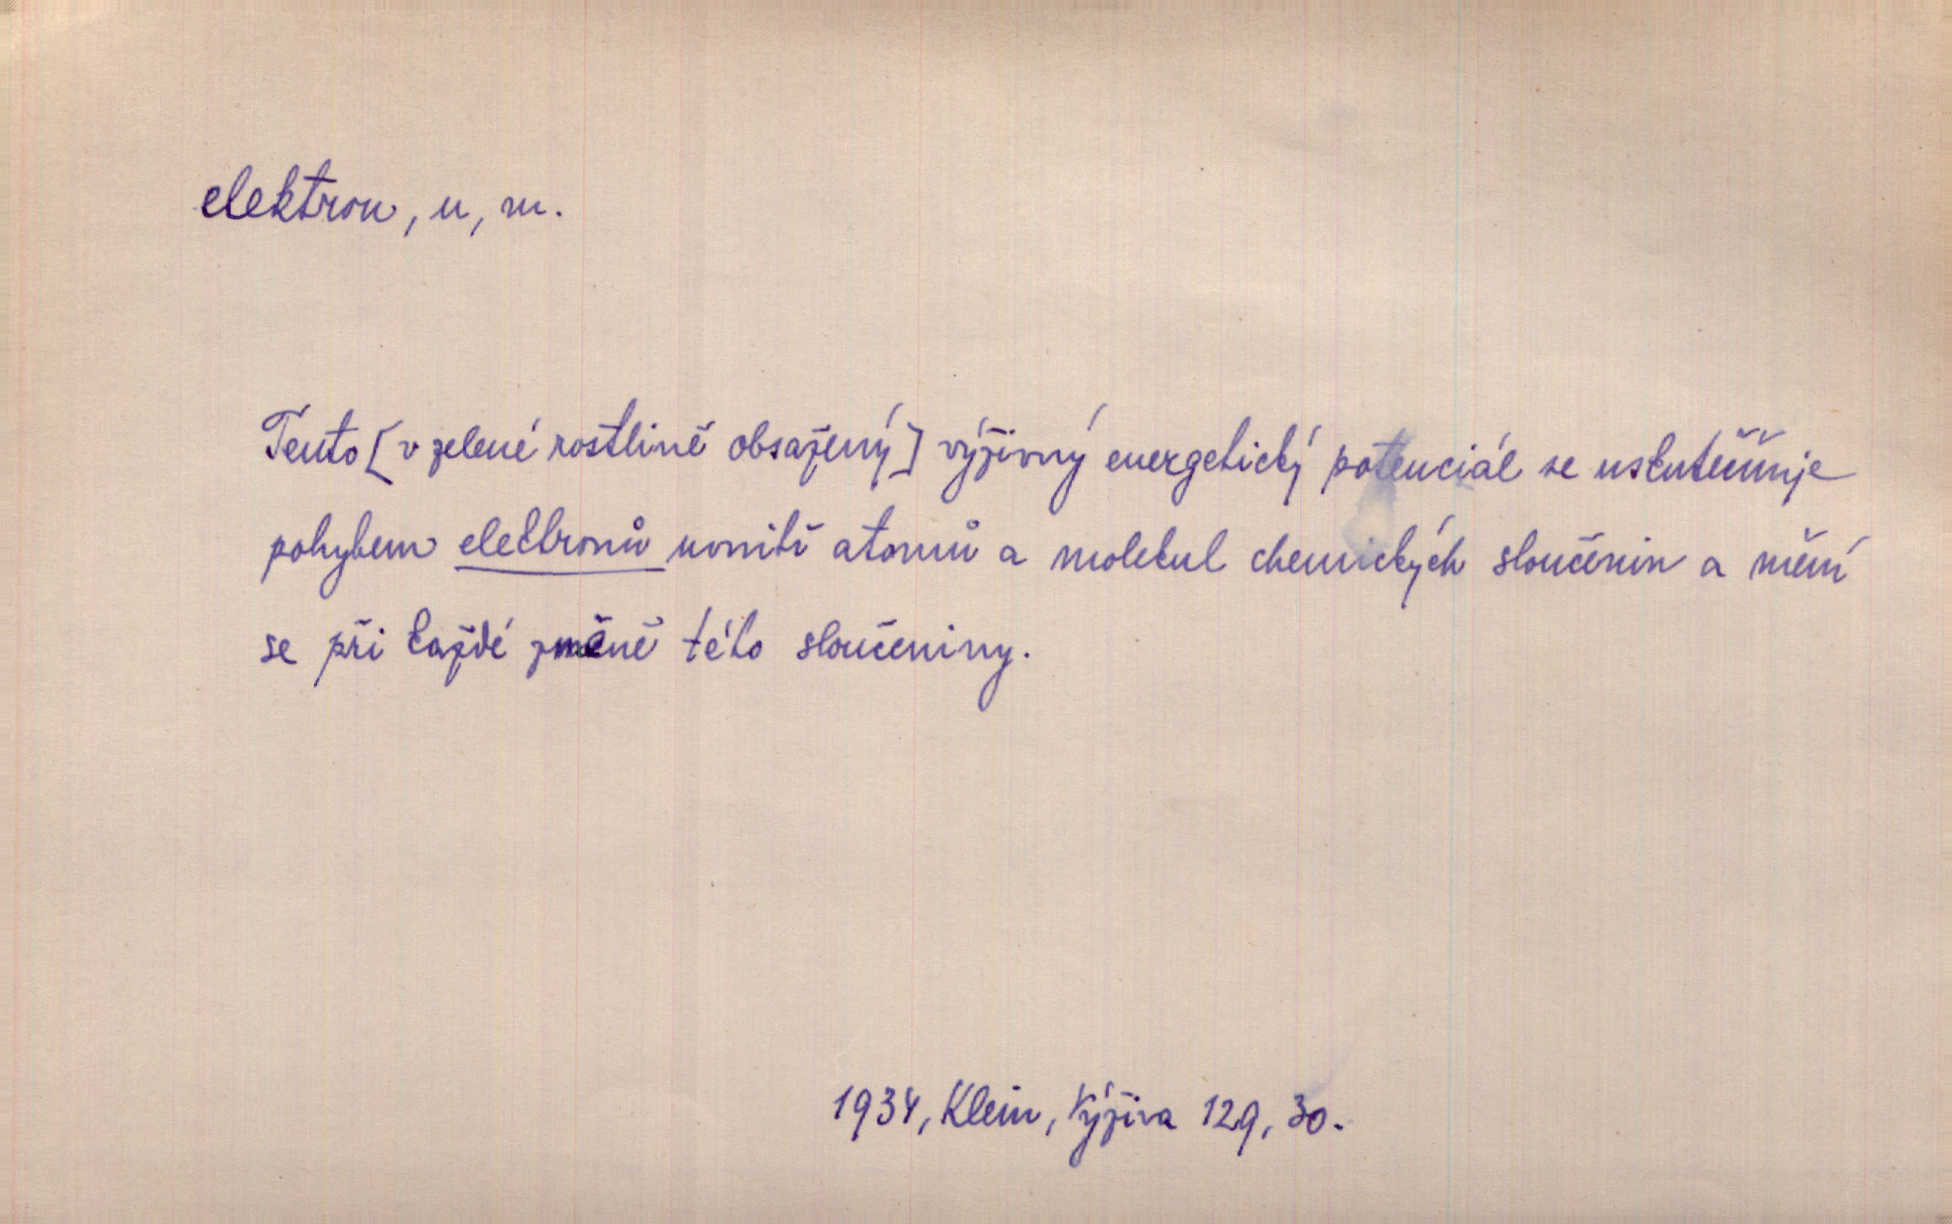 elektron, u, m.
Tento [v zelené rostlině obsažený] výživný energetický potenciál se uskutečňuje
pohybem elektronů uvnitř atomů a molekul chemických sloučenin a mění
se při každé změně této sloučeniny.
1934, Klein, Výživa 129, 30.